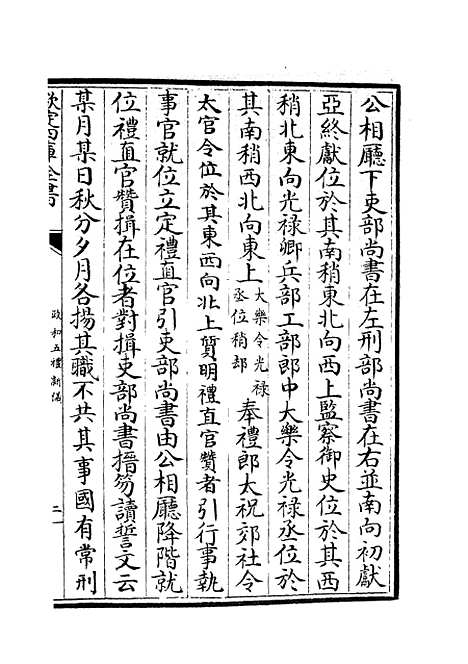 公相廳下吏部尚書在左刑部尚書在右並南向初獻
亞終獻位於其南稍東北向西上監察御史位於其西
稍北東向光祿卿兵部工部郎中大樂令光祿丞位於
其南稍西北向東上大樂令光祿丞位稍却奉禮郎太祝郊社令
太官令位於其東西向北上質明禮直官贊者引行事執
事官就位立定禮直官引吏部尚書由公相廳降階就
位禮直官贊揖在位者對揖吏部尚書搢笏讀誓文云
某月某日秋分夕月各揚其職不共其事國有常刑
欽定四庫全書
政和五禮新儀
二